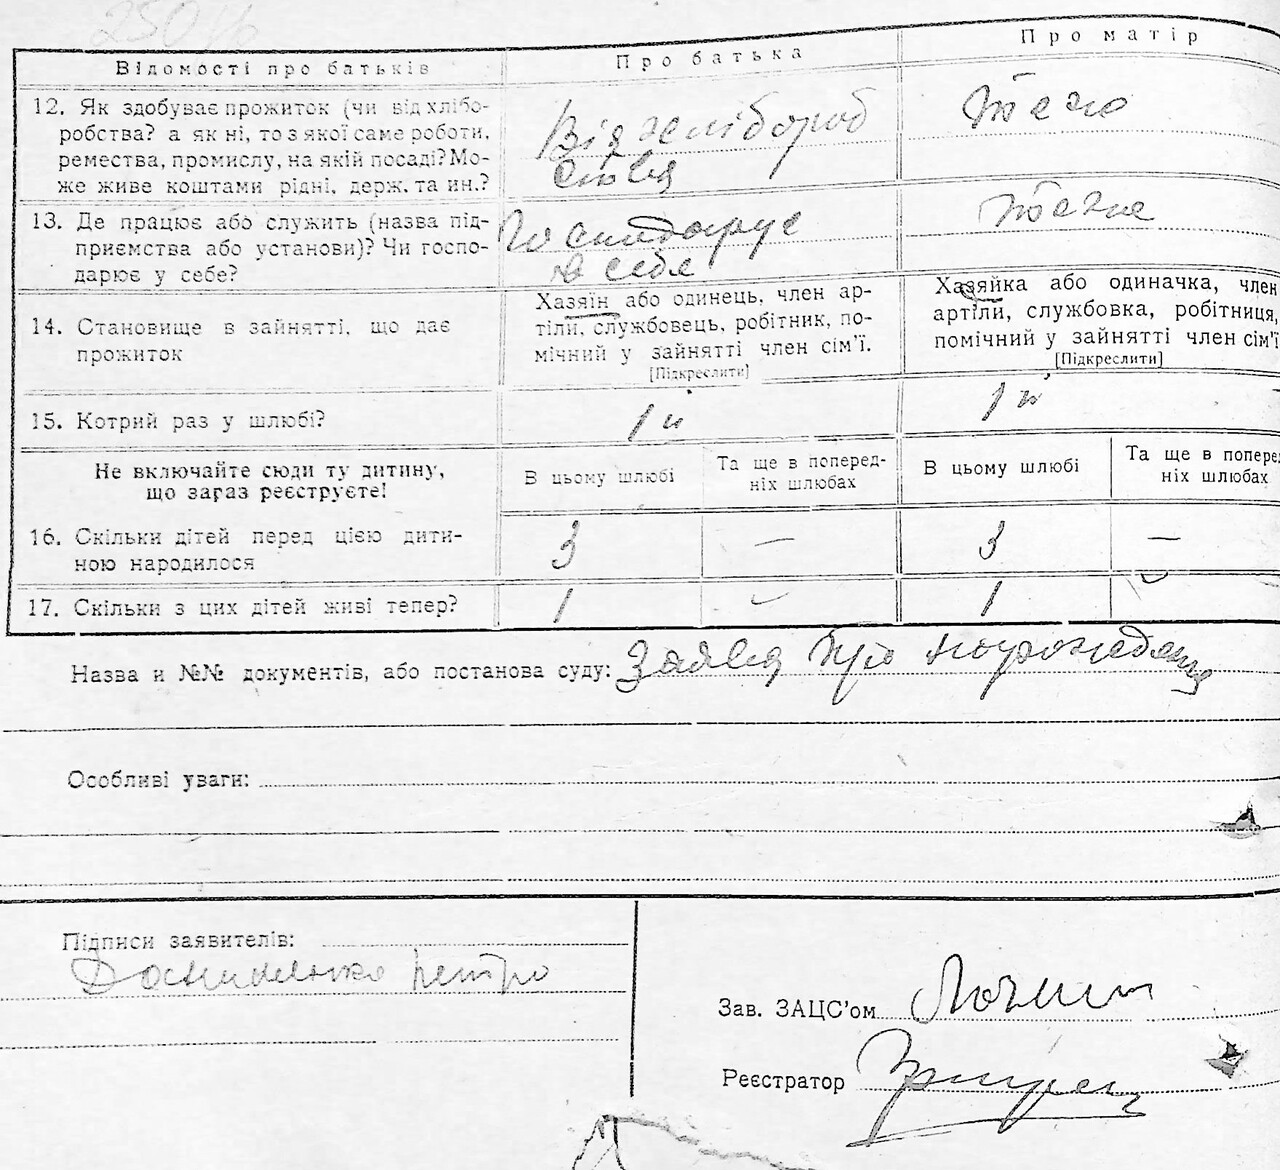 Відомості про батьків
Про батька
Про матір
12. Як здобуває прожиток (чи від хлібо-
робства? а як ні, то з якої саме роботи,
ремества, промислу, на якій посаді? Мо-
же живе коштами рідні, держ. та ин.?
Від хлібороб
ства
13. Де працює або служить (назва під-
приємства або установи)? Чи госпо-
дарює у себе?
Господарує
в себе
14. Становище в зайнятті, що дає
прожиток
Хазяїн або одинець, член ар-
тіли, службовець, робітник, по-
мічний у зайнятті член сім'ї.
[Підкреслити]
Хазяйка або одиначка, член
артіли, службовка, робітниця,
помічний у зайнятті член сім'ї
[Підкреслити]
15. Котрий раз у шлюбі?
1й
1й
Не включайте сюди ту дитину,
що зараз реєструєте!
В цьому шлюбі
Та ще в поперед-
ніх шлюбах
В цьому шлюбі
Та ще в попере
ніх шлюбах
16. Скільки дітей перед цією дити-
ною народилося
3 — 3 —
17. Скільки з цих дітей живі тепер?
1 — 1 —
Назва и №№ документів, або постанова суду: Заява про народження
Особливі уваги:
Підписи заявителів:
Петро
Зав. ЗАЦС'ом
Реєстратор